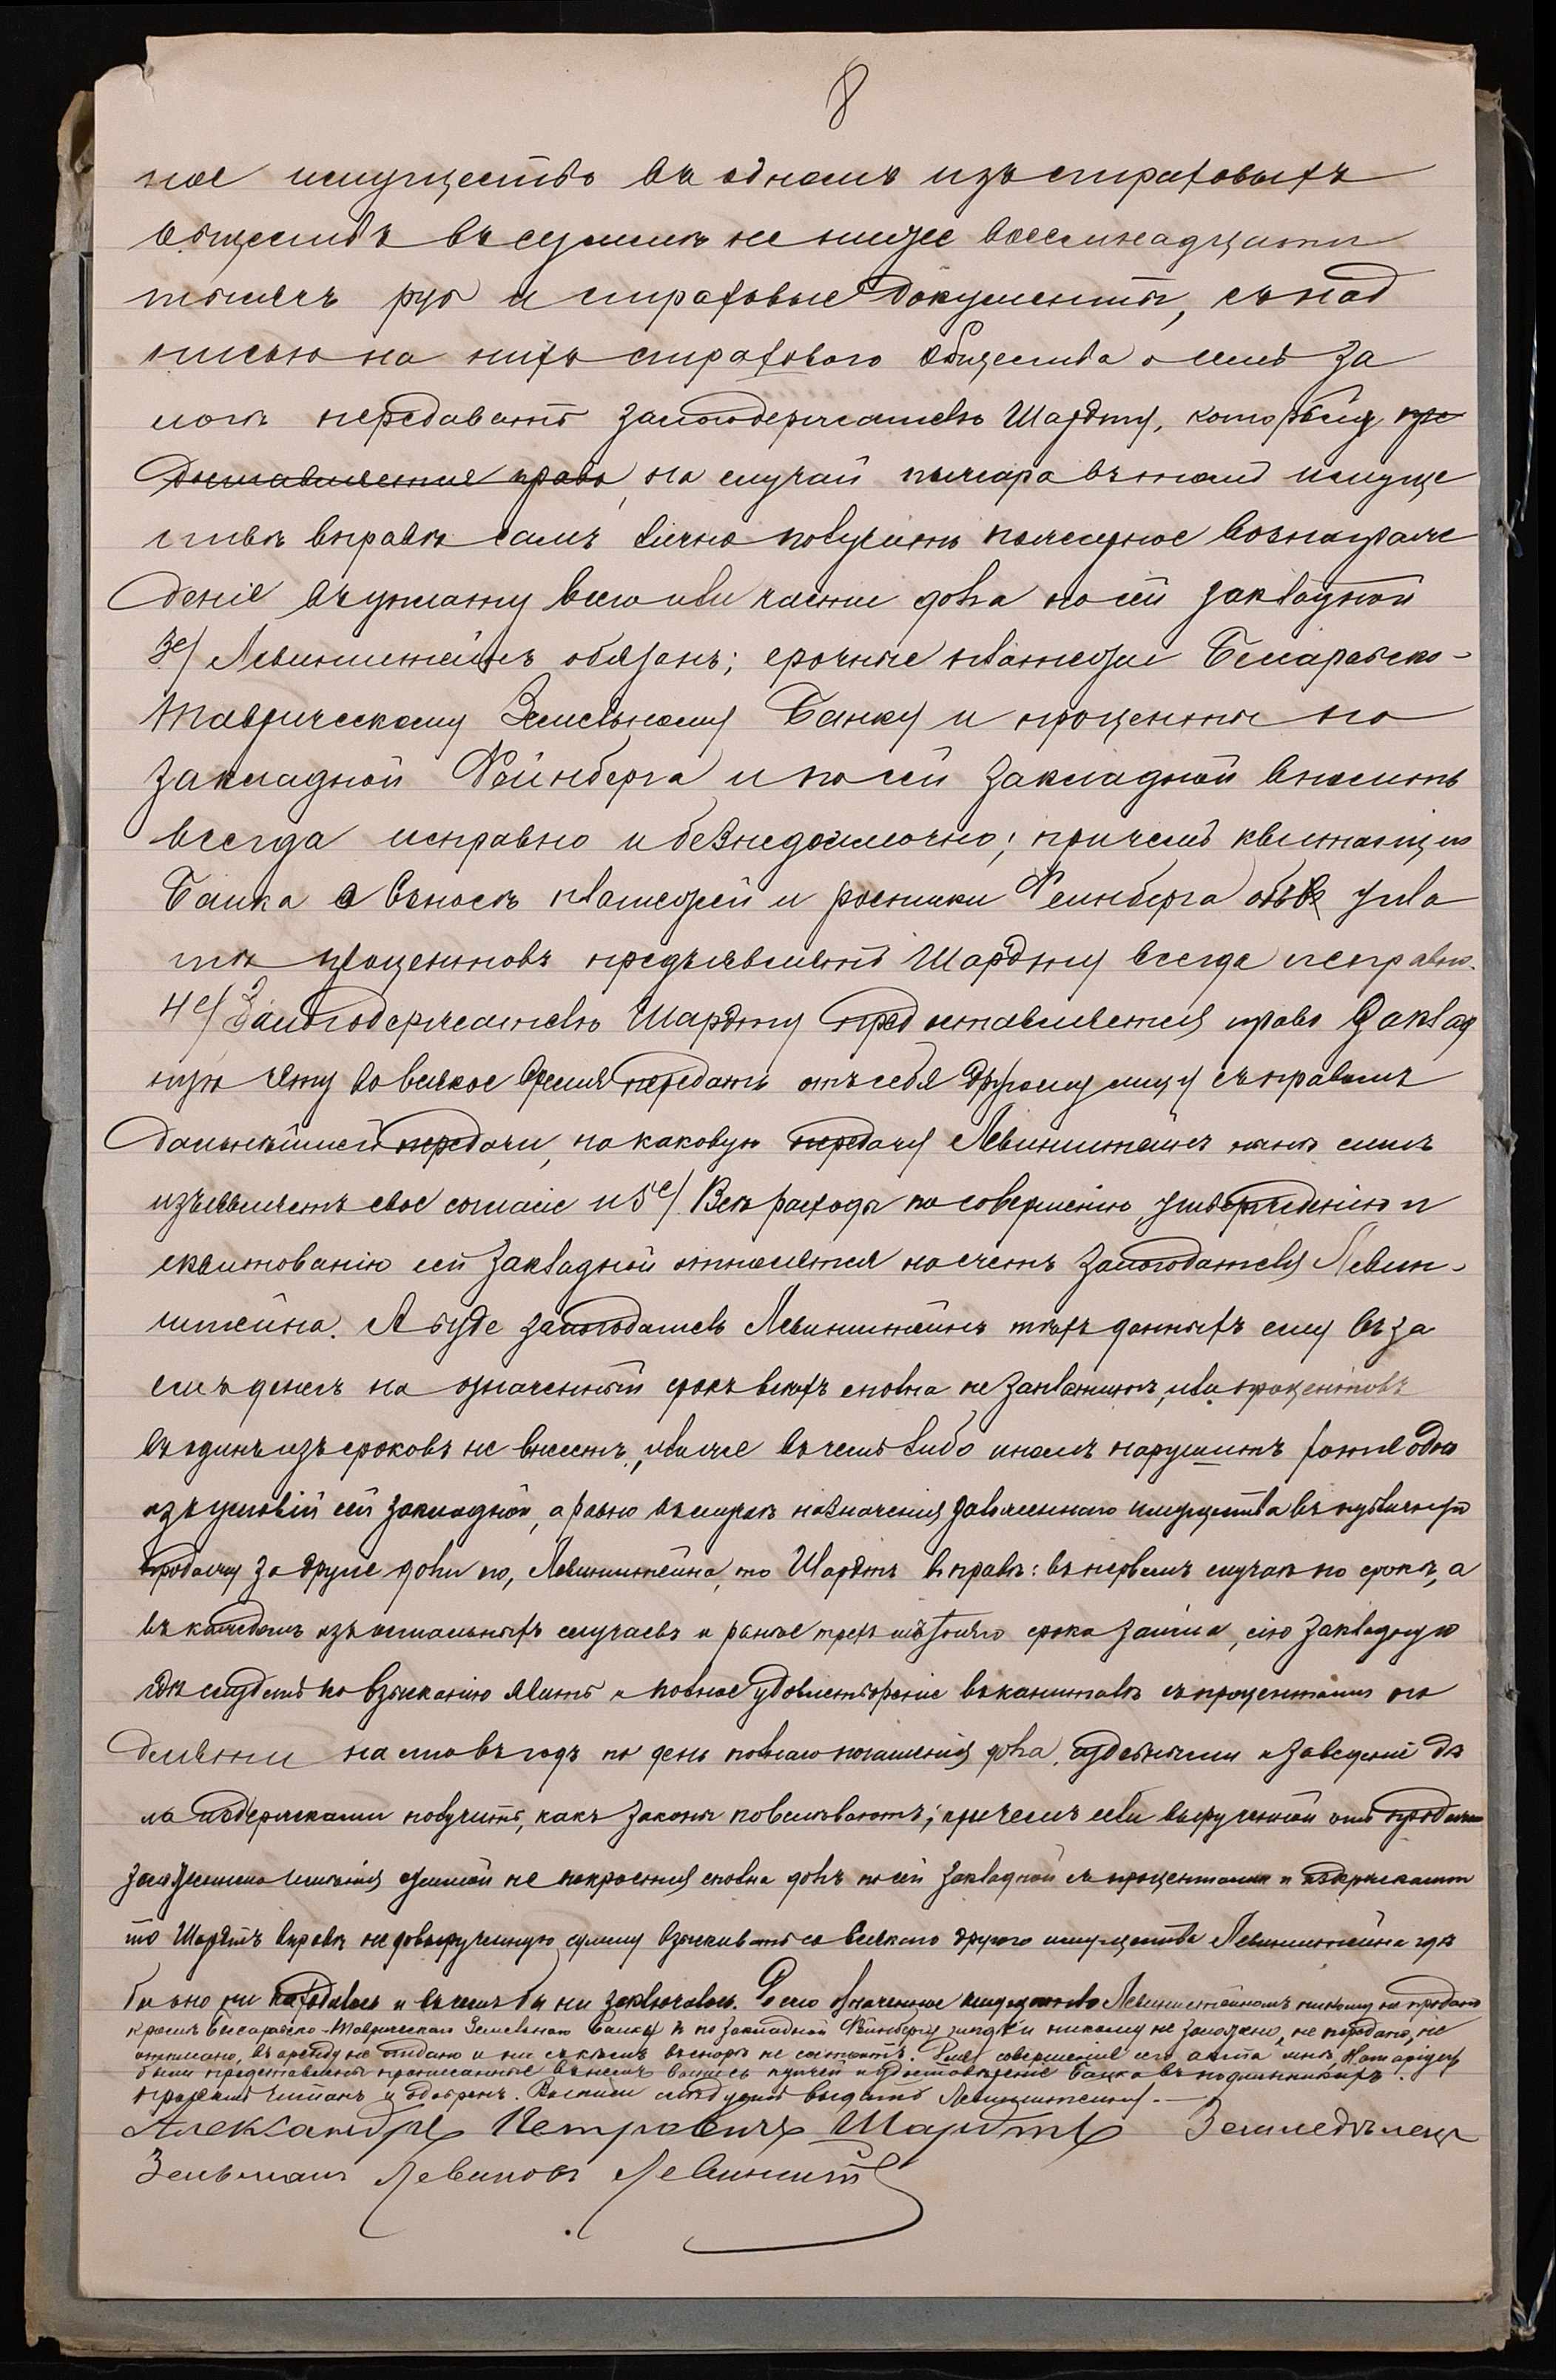 8
ное имущество въ одномъ изъ страховыхъ
обществъ въ суммѣ не ниже восемнадцати
тысячъ руб и страховые документы, съ над
писью на нихъ страхового общества о семъ за
логѣ передавать залогодержателю Шардту, которому пре
доставляется право, на случай пожара въ томъ имуще
ствѣ вправѣ самъ лично получить пожарное вознаграж
деніе въ уплату всего или части долга по сей закладной
3е/ Левинштейнъ обязанъ; срочные платежи Бессарабско-
Таврическому Земельному Банку и проценты по
закладной Фейнберга и по сей закладной вносить
всегда исправно и безнедоимочно; причемъ квитанціи
Банка о взносѣ платежей и росписки Фейнберга объ упла
тѣ процентовъ предъявлять Шардту всегда исправно.
4е/ Залогодержателю Шардту предоставляется право заклад
ную эту во всякое время передать отъ себя другому лицу съ правомъ
дальнѣйшей передачи, на каковую передачу Левинштейнъ симъ
изъявляетъ свое согласіе и 5е/ Всѣ расходы по совершенію утвержденію и
сквитованію сей закладной относятся на счетъ залогодателя Левин-
штейна. А буде залогодатель Левинштейнъ тѣхъ данныхъ ему въ за
емъ денегъ на означенный срокъ всѣхъ сполна не заплатитъ, или процентовъ
въ одинъ изъ сроковъ не внесетъ, или же въ чемъ либо иномъ нарушитъ хотя одно
изъ условій сей закладной, а равно въ случаѣ назначенія заложеннаго имущества въ публичную
продажу за другіе долги его, Левинштейна, то Шардтъ вправѣ: въ первомъ случаѣ по срокѣ, а
въ каждомъ изъ остальныхъ случаевъ и ранѣе трехъ лѣтняго срока займа, сію закладную
гдѣ слѣдуетъ ко взысканію явить и полное удовлетвореніе въ капиталѣ съ процентами по
девяти на сто въ годъ по день полнаго погашенія долга, судебными и за веденіе дѣ
ла издержками получить, какъ законы повелѣваютъ; причемъ если вырученной отъ продажи
заложеннаго имѣнія суммой не покроется сполна долгъ по сей закладной съ процентами и издержками
то Шардтъ вправѣ недовырученную сумму взыскивать со всякаго другого имущества Левинштейна гдѣ
бы оно ни находилось и въ чемъ бы ни заключалось. До сего означенное имущество Левинштейномъ никому не продано
кромѣ Бессарабско-Таврическаго Земельнаго Банка и по закладной Фейнбергу никому не заложено, не передано, не
отписано, въ аренду не отдано и ни съ кѣмъ въ спорѣ не состоитъ. При совершеніи сего акта мнѣ, Нотаріусу
были представлены прописанные въ немъ выпись купчей и удостовѣреніе Банка въ подлинникахъ.
Проектъ читанъ и одобренъ. Выписи слѣдуетъ выдать Левинштейну.—
Александръ Петровичъ Шардтъ Земледѣлецъ
Зельманъ Левиковъ Левинштейнъ